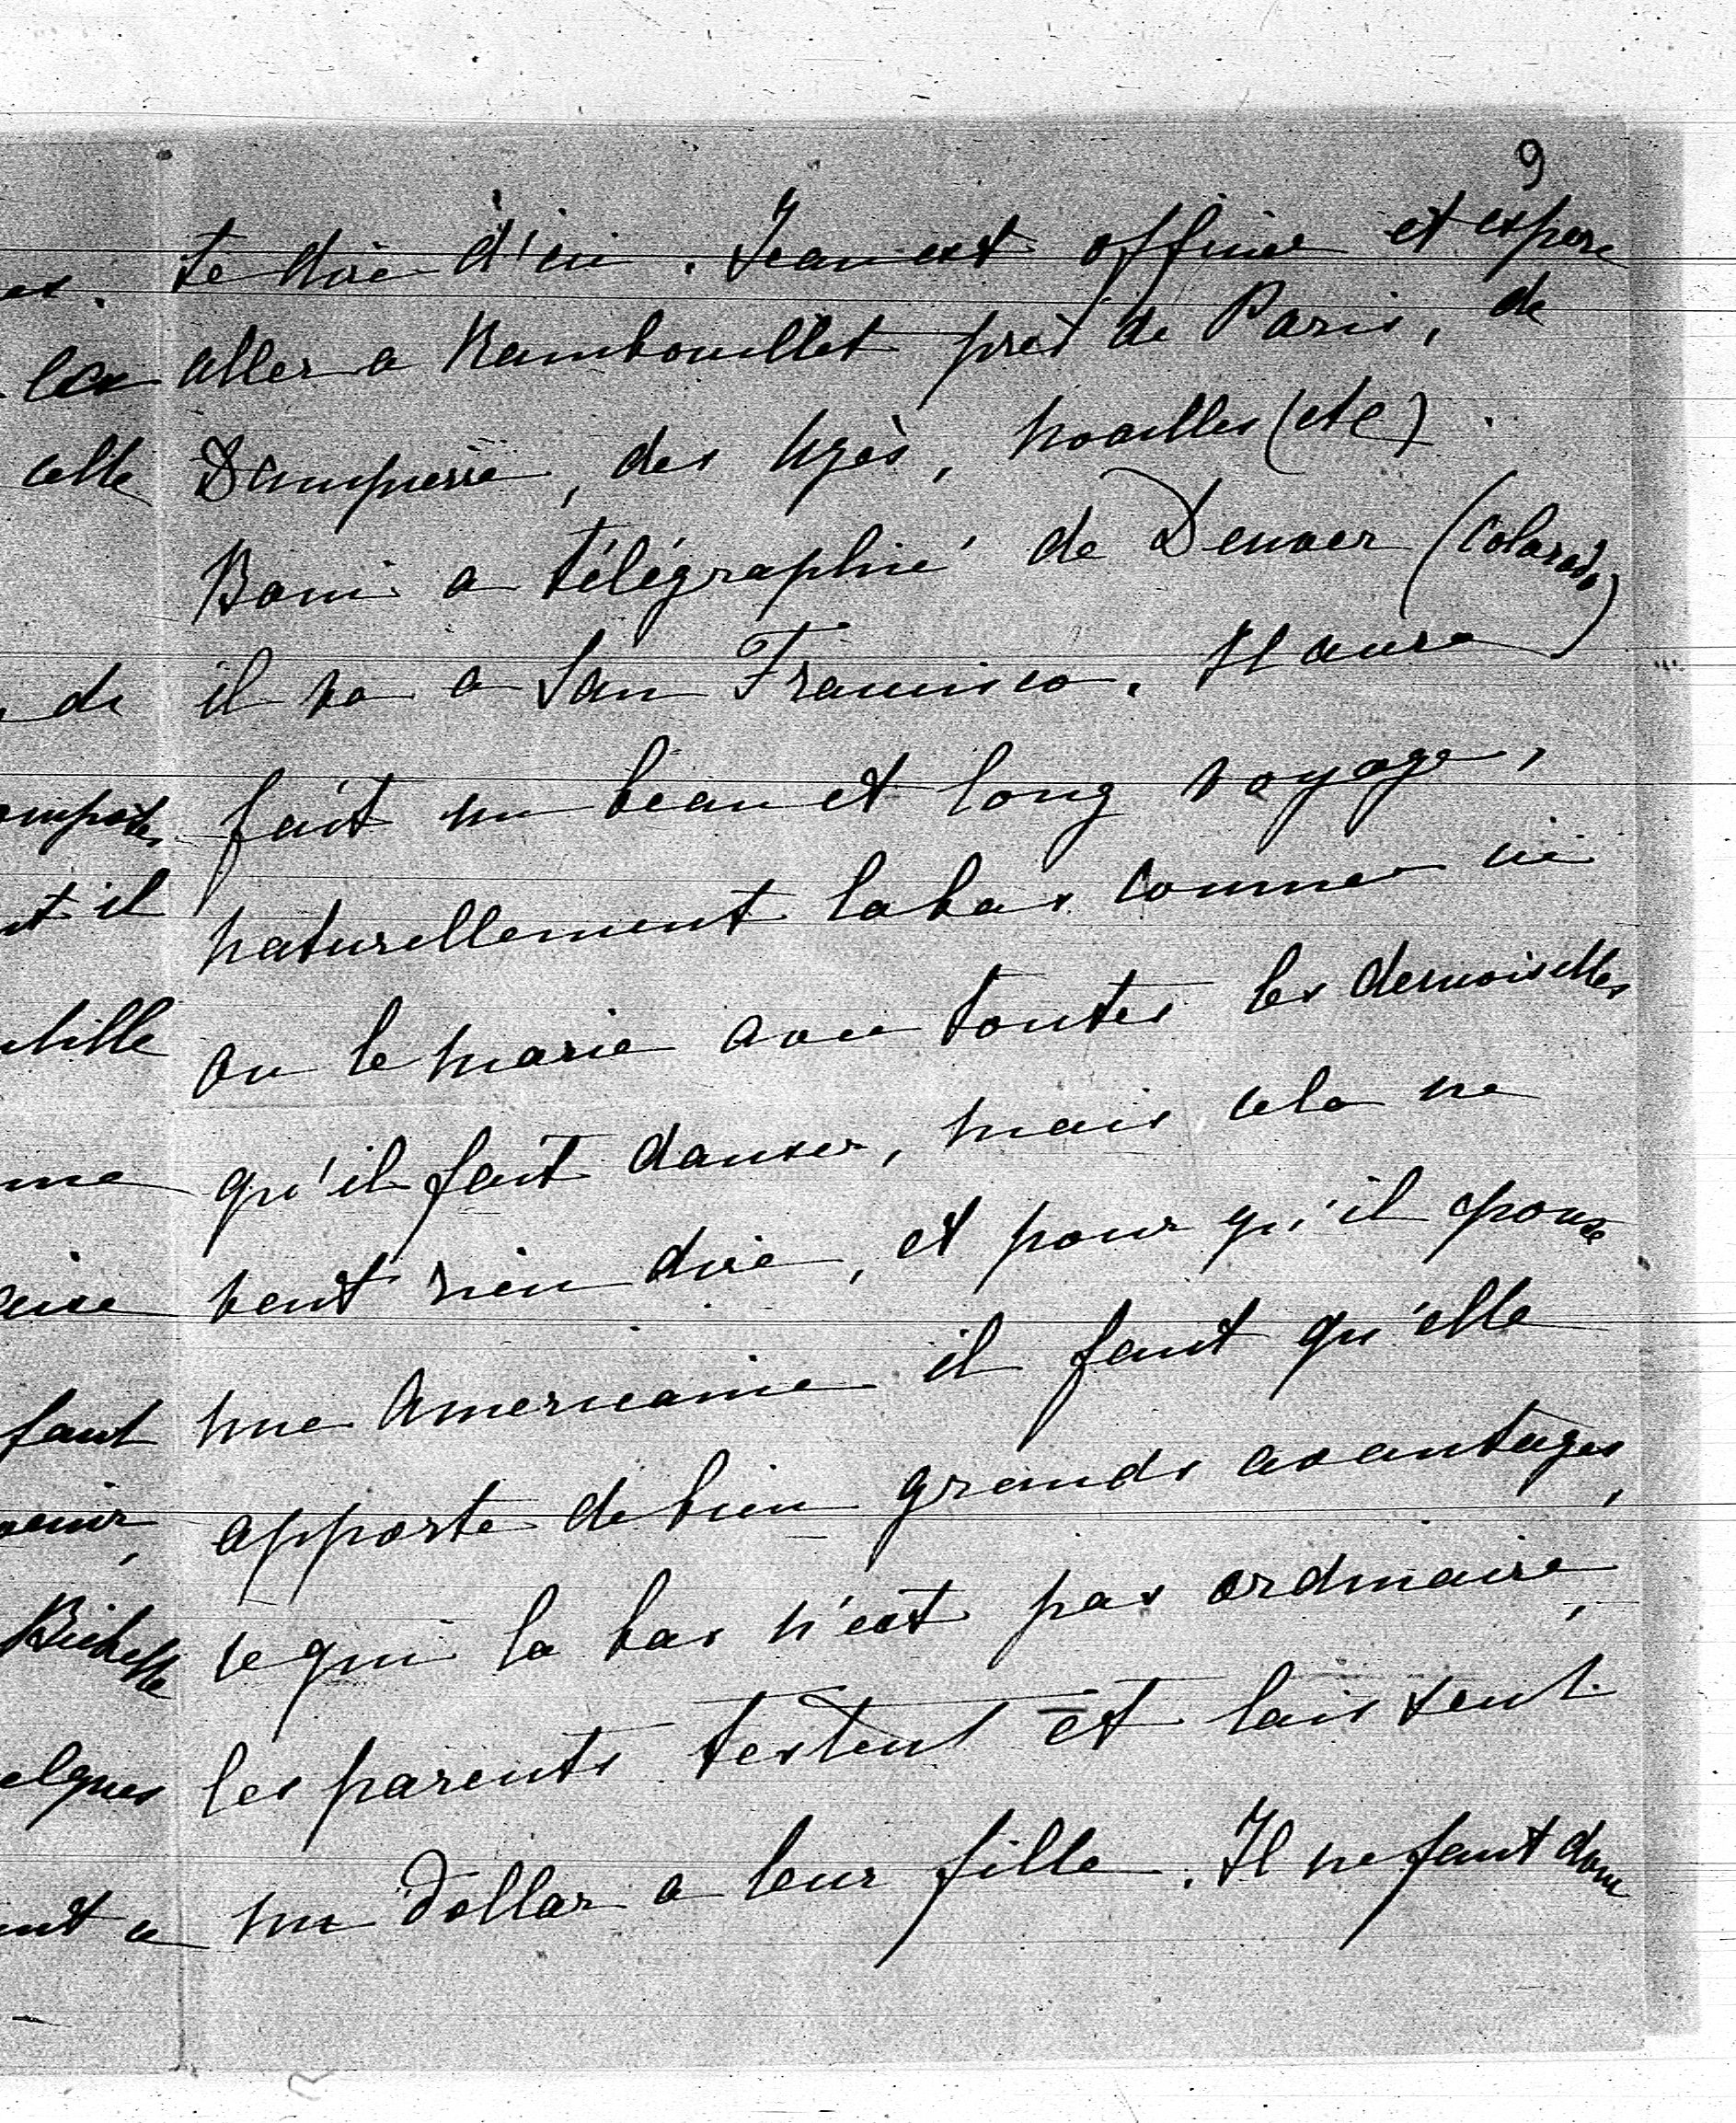 9
te dire d'ici. Jean est officier et espere
aller a Rambouillet près de Paris, de
Dampierre, des Uzès, Noailles (etc).
Boni a télégraphié de Denver (Colorado)
il va a San Francisco. Il aura
fait un beau et long voyage,
naturellement labas comme ici
on le marie avec toutes les demoiselles
qu'il fait danser, mais cela ne
veut rien dire, et pour qu'il épouse
une Americaine il faut qu'elle
apporte de bien grands avantages,
ce qui la bas n'est pas ordinaire,
les parents testent et laissent
un dollar a leur fille. Il ne faut donc
les
cette
de
nt il
me
faut
Bichette
elques